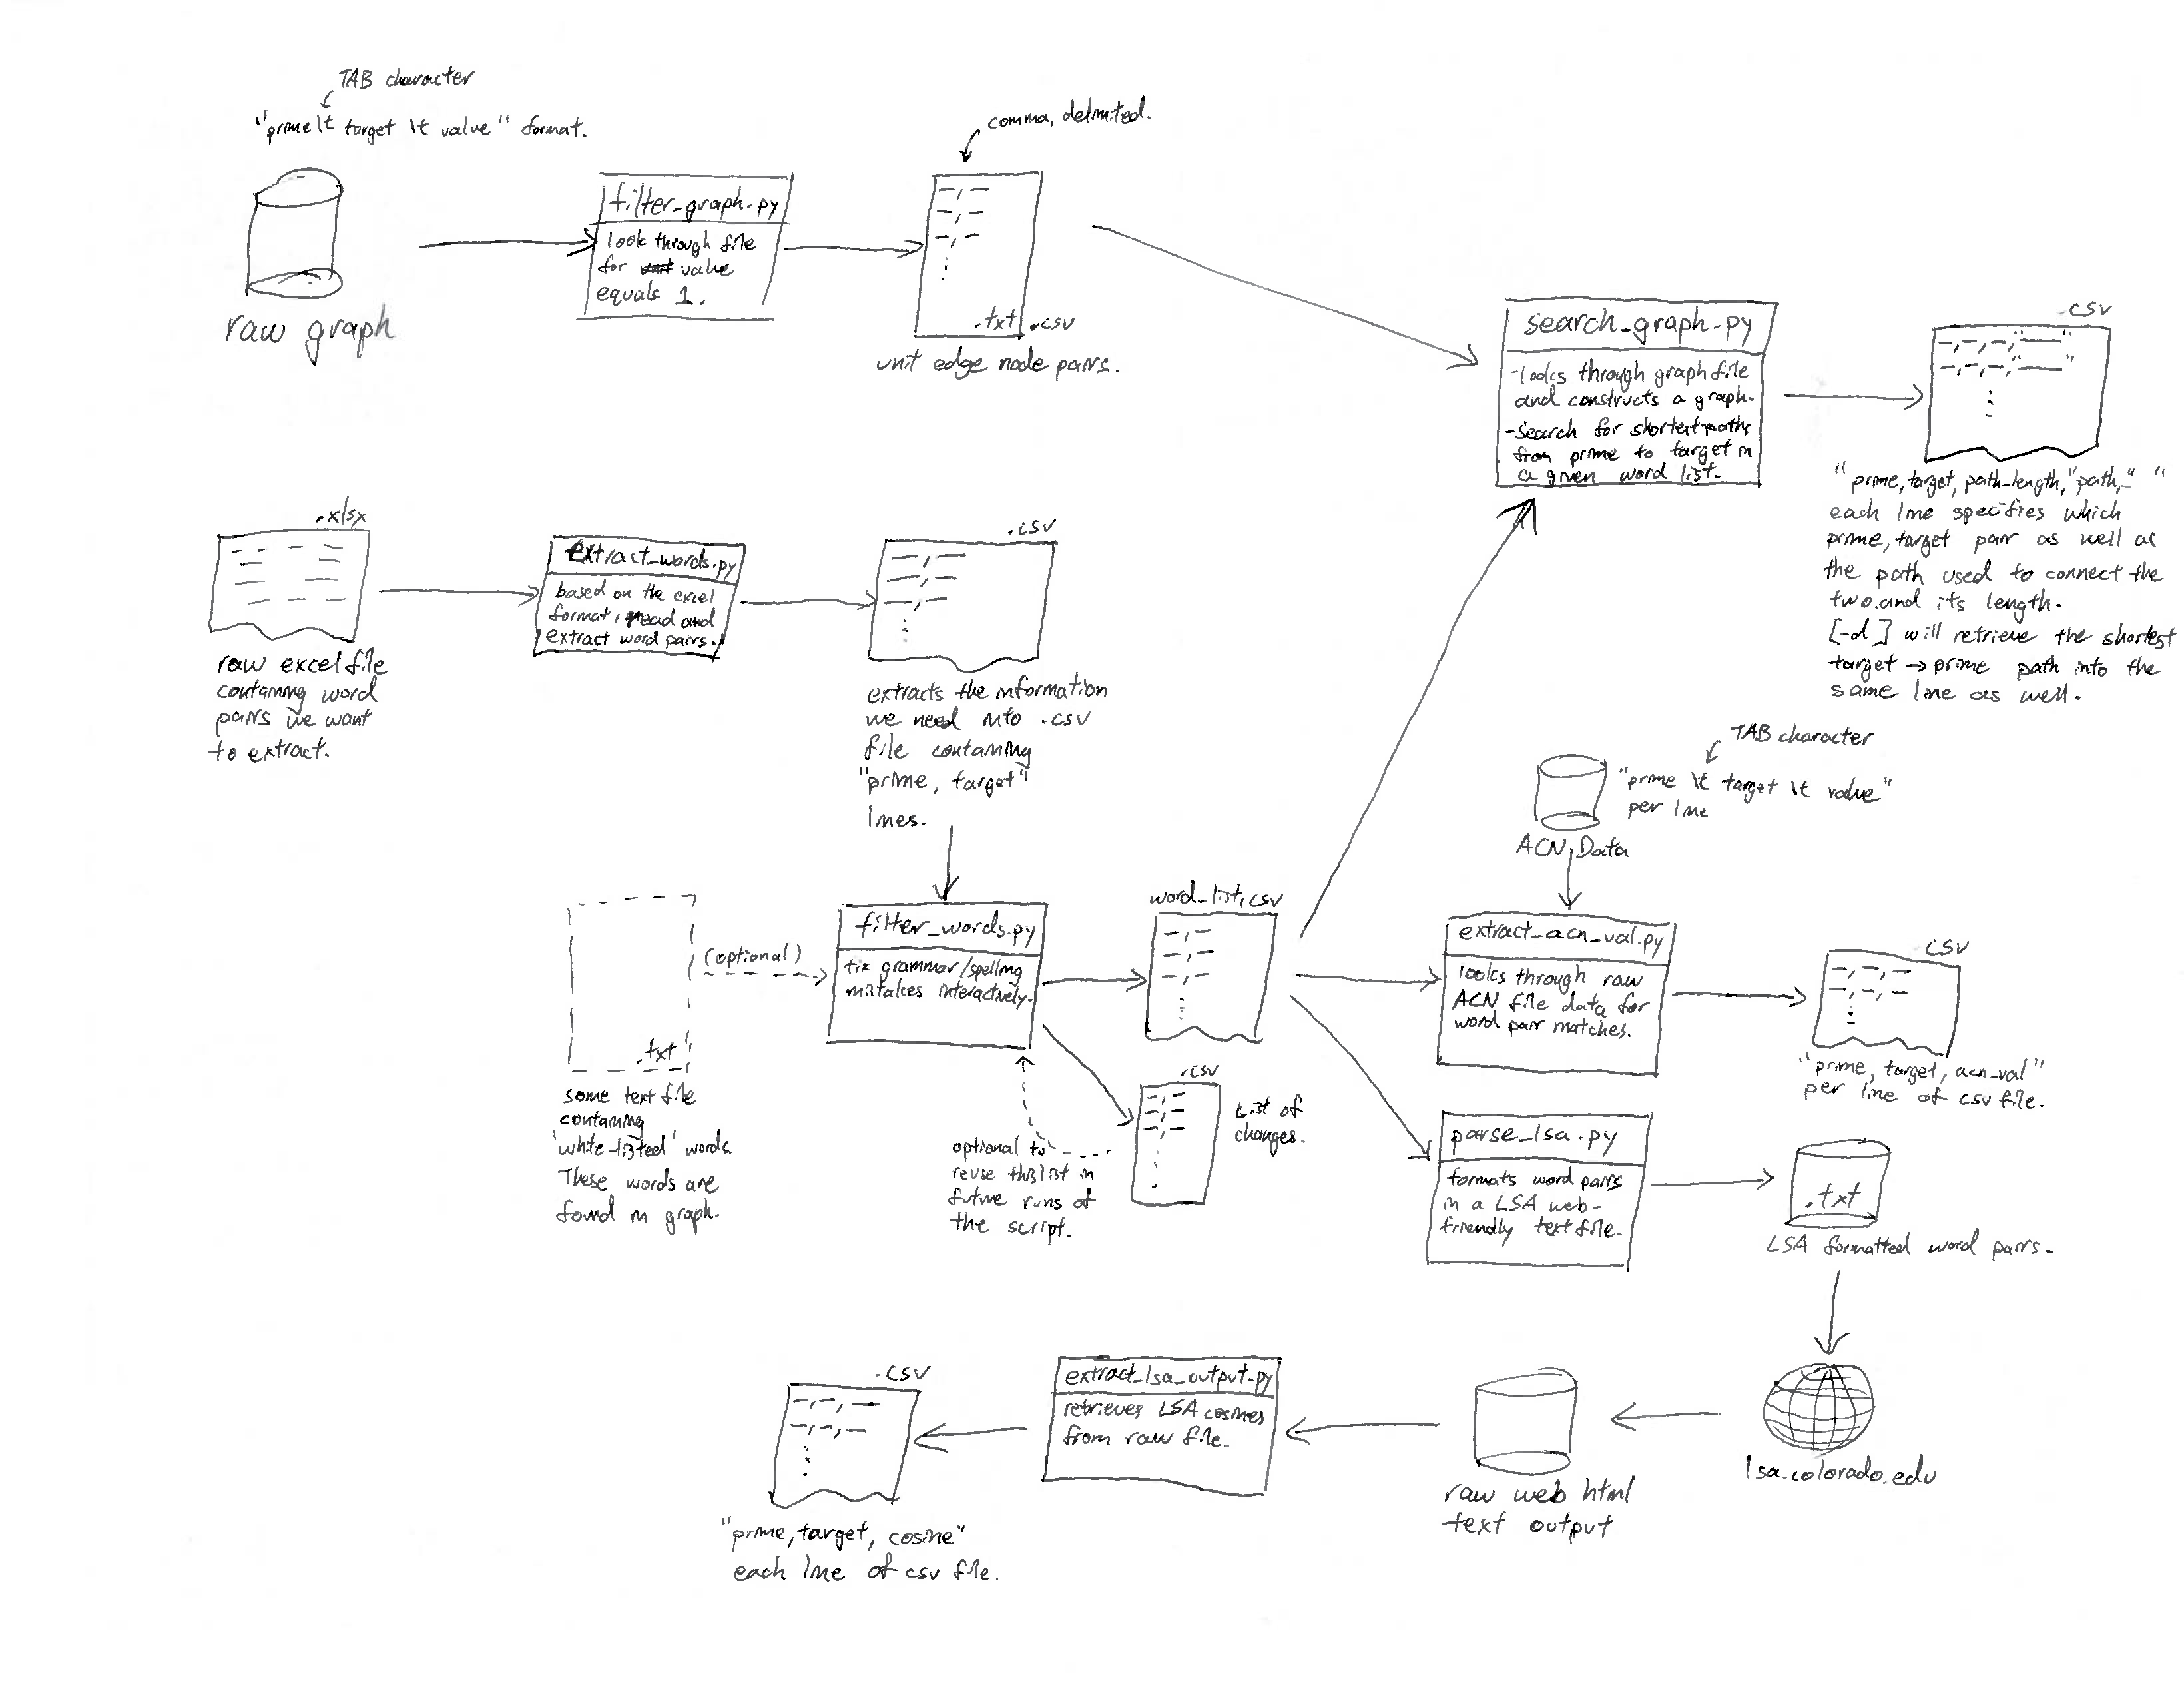 TAB character
"prime\t target \t value" format.
raw graph
filter_graph.py
look through file
for value
equals 1.
comma, delimited.
.txt/.csv
unit edge node pairs.
search_graph.py
-looks through graph file
and constructs a graph.
-search for shortest paths
from prime to target in
a given word list.
.csv
"prime,target, path-length,"path,-" "
each line specifies which
prime, target pair as well as
the path used to connect the
two.and its length.
[-d] will retrieve the shortest
target → prime path into the
same line as well.
.xlsx
raw excel file
containing word
pairs we want
to extract.
extract_words.py
based on the excel
format, read and
extract word pairs.
.csv
extracts the information
we need into .csv
file containing
"prime, target"
lines.
TAB character
"prime \t target \t value"
per line
ACN Data
.txt
some text file
containing
'white-listed' words
These words are
found in graph.
(optional)
filter_words.py
fix grammar/spelling
mistakes interactively.
word_list.csv
.csv
List of
changes.
optional to
reuse this list in
future runs of
the script.
extract_acn_val.py
looks through raw
ACN file data for
word pair matches.
.csv
"prime, target, acn_val"
per line of csv file.
parse_lsa.py
formats word pairs
in a LSA web-
friendly text file.
.txt
LSA formatted word pairs.
lsa.colorado.edu
raw web html
text output
extract_lsa_output.py
retrieves LSA cosines
from raw file.
.csv
"prime, target, cosine"
each line of csv file.